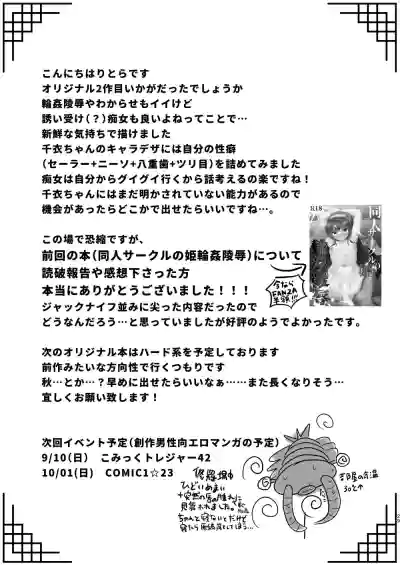 こんにちはりとらです
オリジナル2作目いかがだったでしょうか
輪姦陵辱やわからせもイイけど
誘い受け(?)痴女も良いよねってことで…
新鮮な気持ちで描けました
千衣ちゃんのキャラデザには自分の性癖
(セーラー+ニーソ+八重歯+ツリ目)を詰めてみました
痴女は自分からグイグイ行くから話考えるの楽ですね!
千衣ちゃんにはまだ明かされていない能力があるので
機会があったらどこかで出せたらいいですね…。
この場で恐縮ですが、
前回の本(同人サークルの姫輪姦陵辱)について
読破報告や感想下さった方
本当にありがとうございました!!!
ジャックナイフ並みに尖った内容だったので
どうなんだろう…と思っていましたが好評のようでよかったです。
今なら
FANZA
半額!!!
R18
次のオリジナル本はハード系を予定しております
前作みたいな方向性で行くつもりです
秋…とか…?早めに出せたらいいなぁ……また長くなりそう…
宜しくお願い致します!
次回イベント予定(創作男性向エロマンガの予定)
9/10(日) こみっくトレジャー42
10/01(日) COMIC1☆23
修羅場中
ひどいめまい
+突然の
見舞われました。
ちゃんと寝ないとだけど
寝たら原稿落としてしまう…
部屋の気温
30℃↑
29